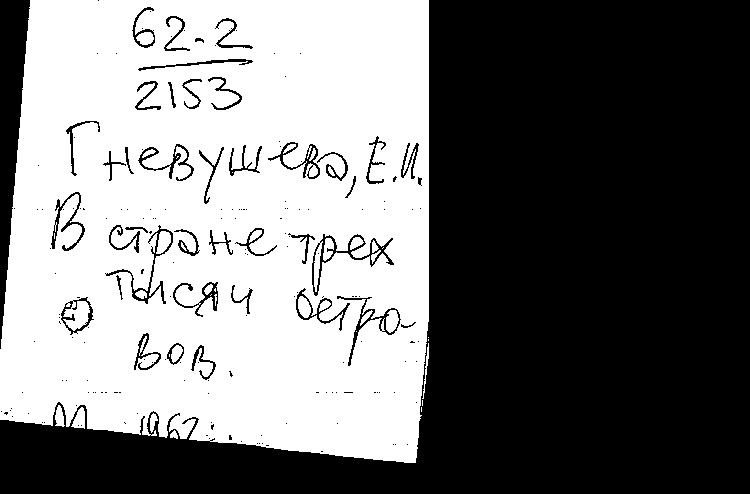 62-2
2153
Гневушева, Е.И.
В стране трех
тысяч остро-
вов.
М. 1962.